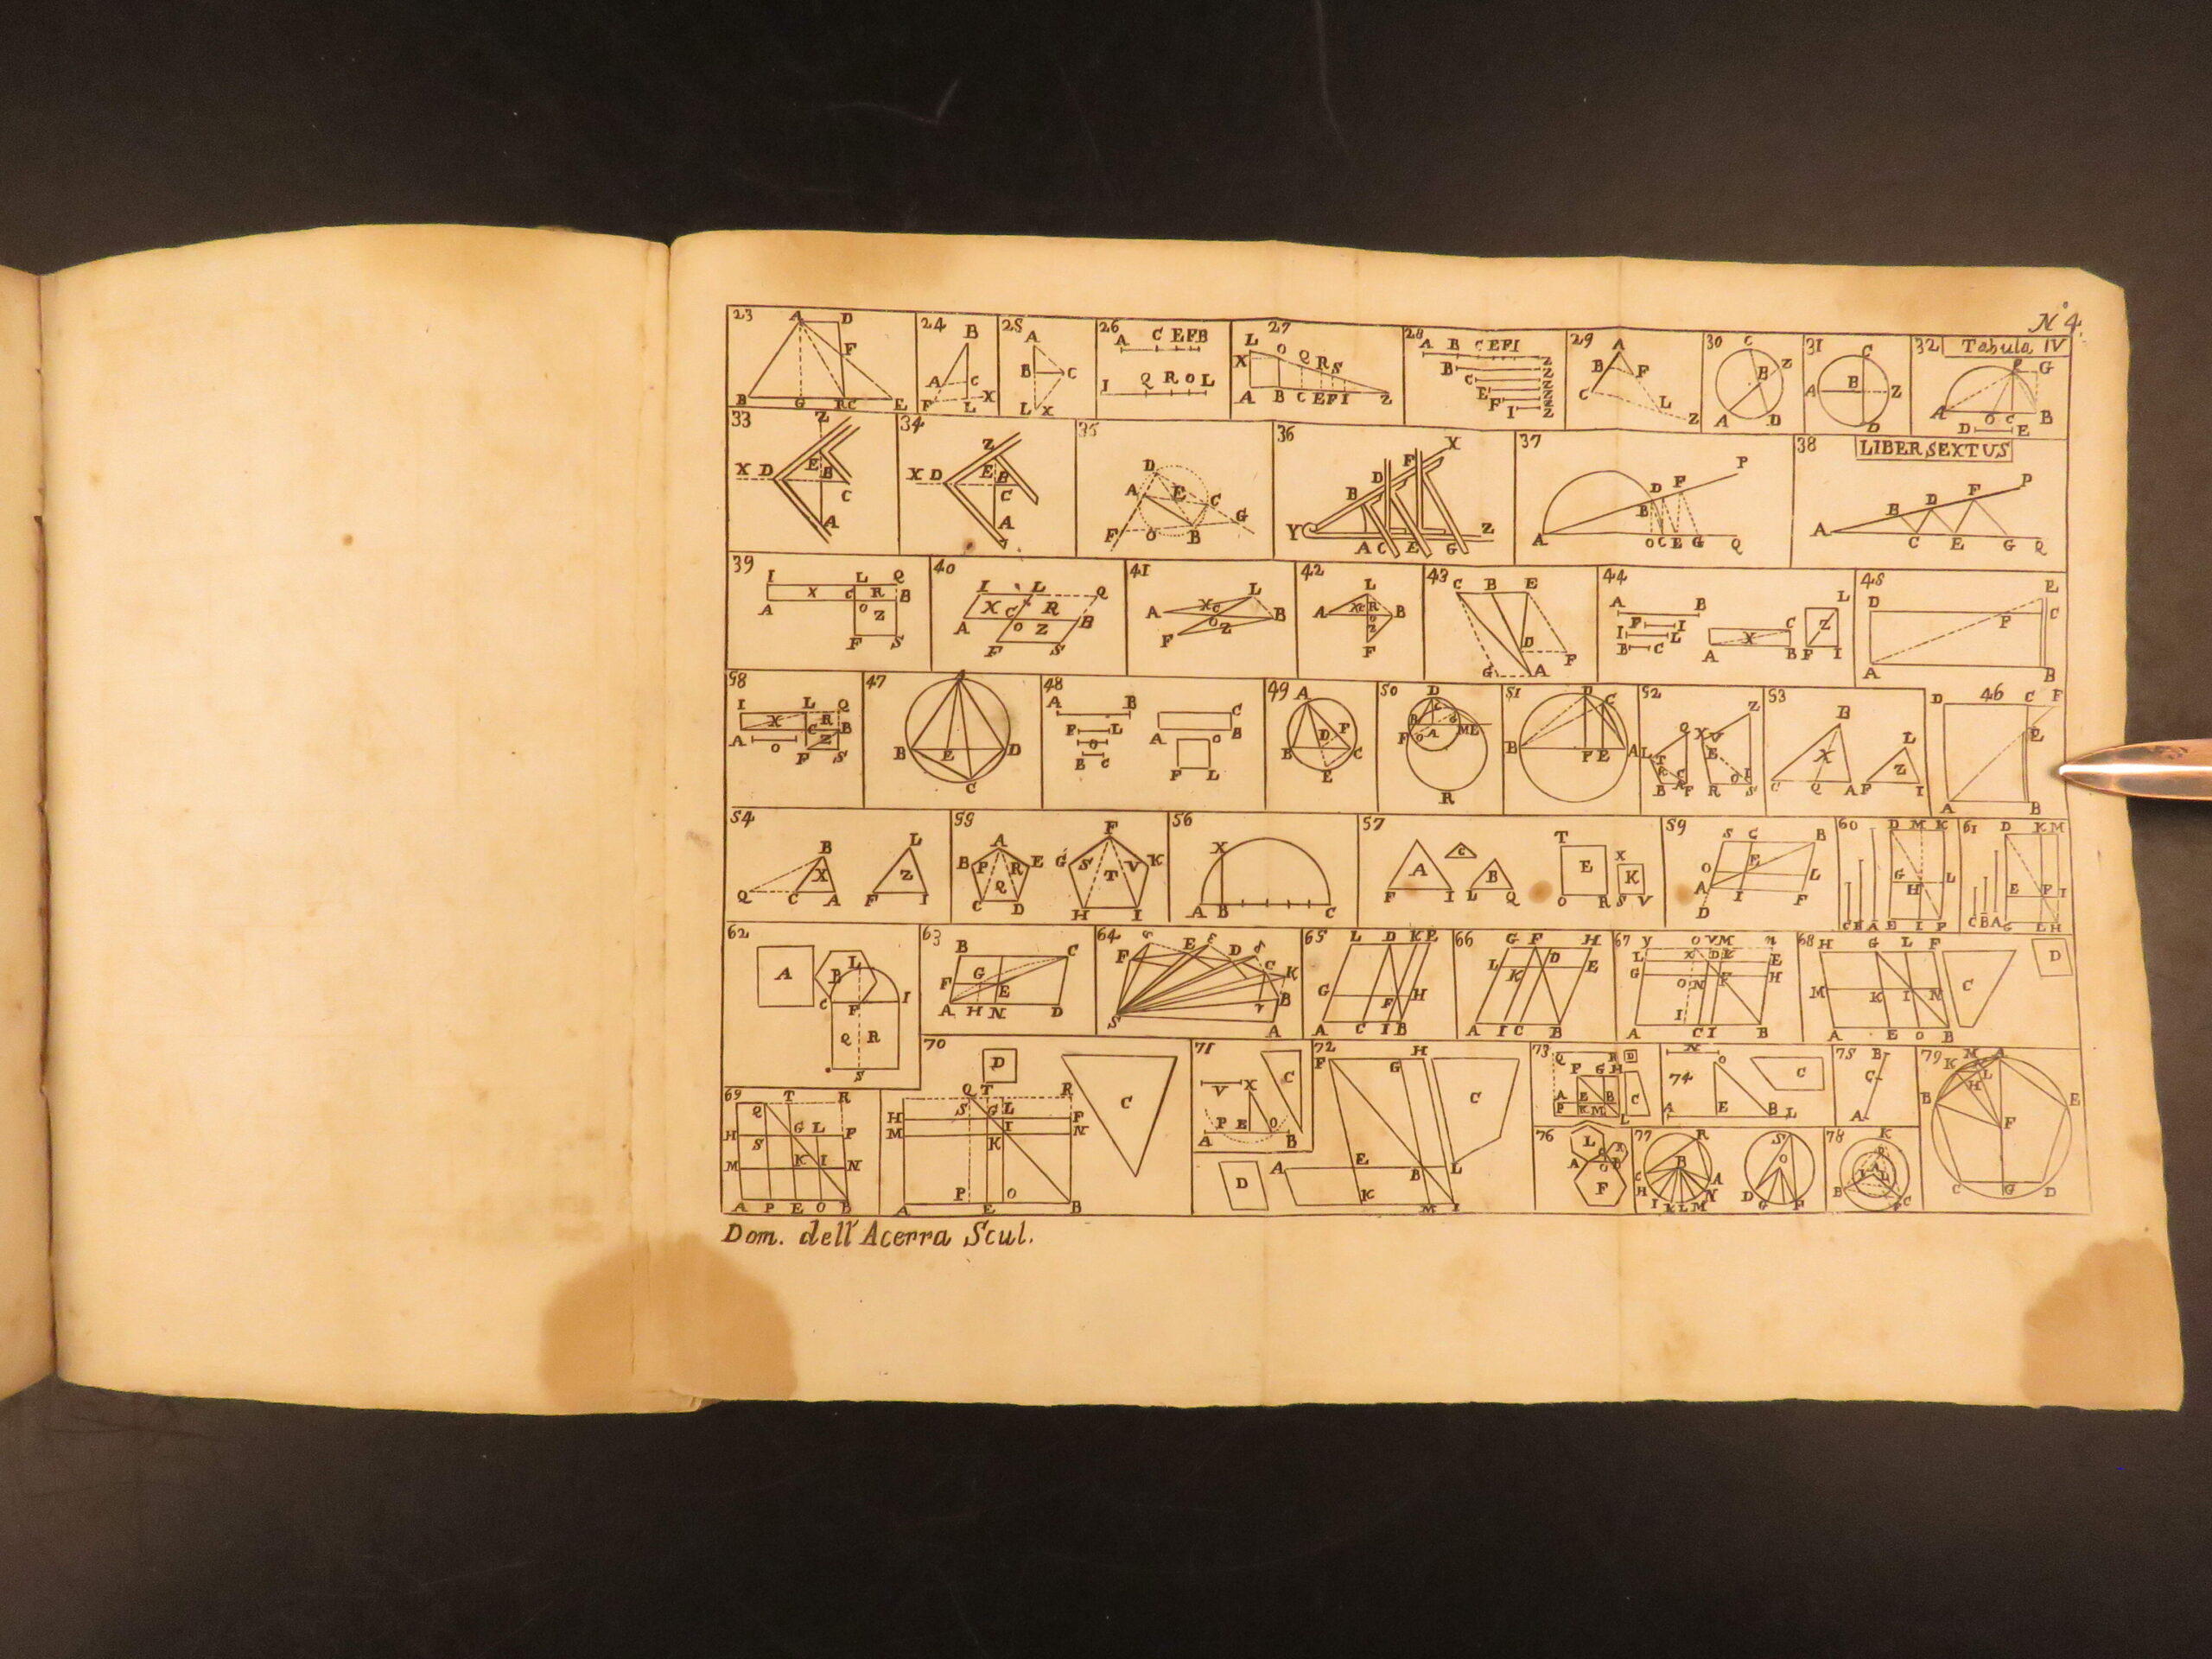 N° 4.
23 A D F B G R C E
24 B A C F L X
25 A B C L X
26 A C E F B I Q R O L
27 L O Q R S X A B C E F I Z
28 A B C E F I Z B Z C Z E Z F Z I Z
29 A B F C L Z
30 C Z B A D
31 C A B Z D
32 Tabula IV
F G A O C B D E
33 Z X D E B C A
34 Z X D E B C A
35 D A E C G F O B
36 X F D B Y Z A C E G
37 P D F B A O C E G Q
38 LIBER SEXTUS
P F D B A C E G Q
39 I L Q X C R B A O Z F S
40 I L Q X C R A O Z B F S
41 L X C A O Z B F
42 L A X C R B O Z F
43 C B E D F G A
44 A B F I I L B C C X A B L Z F I
45 E D C P A B
58 I L Q X R C B A O Z F S
47 A B E D C
48 A B F L O B C C A B O F L
49 A D F B C E
50 D B C F O A M E R
51 D C B F E A
52 Z Q X V L E B F R O S
53 B X L Z C Q A F I
46 D C F E A B
54 B X L Z Q C A F I
55 A B P R E Q C D F G S V K T H I
56 X A B C
57 A C B F I L Q T E X K O R S V
59 S C B O E A L I F D
60 D M K G L H C B A E I P
61 D K M E F I C B A G L H
62 A B L C P I Q R S
63 B C G F E A H N D
64 G E F E D C K B S A
65 L D K E G F H A C I B
66 G F H L D E K A I C B
67 Y O V M n L X D K E G O N F H I A C I B
68 H G L F D C M K I N A E O B
69 Q T R G L H S P K I M N A P E O B
70 D Q T R S G L H F M I N K C P O A E B
71 V X C P E O A B
72 F H G C D A E B L K M I
73 Q R D P G H A E B C P K M L
74 N O C A E B L
75 B C A
79 M A K L H B E F C G D
76 L K A O B F
77 R B C A H N I K L M S O D G F
78 K B C
Dom. dell' Acerra Scul.